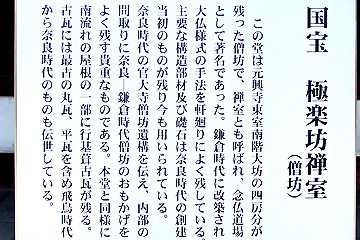 国宝　極楽坊禅室
（僧坊）
この堂は元興寺東室南階大坊の四房分が
残った僧坊で、禅室とも呼ばれ、念仏道場
として著名であった。鎌倉時代に改築され
大仏様式の手法を軒廻りによく残している。
主要な構造部材及び礎石は奈良時代の創建
当初のものが残り今も用いられている。
奈良時代の官大寺僧坊遺構を伝え、内部の
間取りに奈良―鎌倉時代僧坊のおもかげを
よく残す貴重なものである。本堂と同様に
南流れの屋根の一部に行基葺古瓦が残る。
古瓦には最古の丸瓦、平瓦を含め飛鳥時代
から奈良時代のものも伝世している。